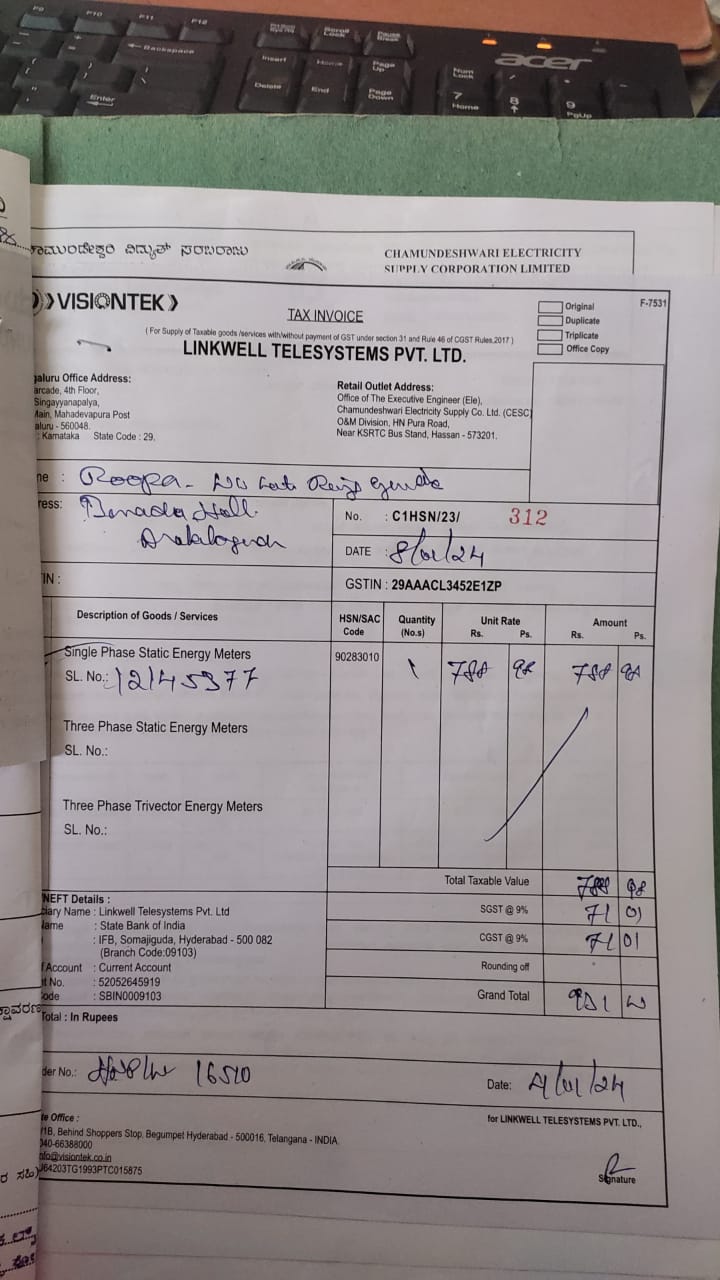 F9 F10 F11 F12
Scroll Lock Pause Break
Backspace Insert Home Page Up Num Lock
acer
Enter Delete End Page Down 7 Home 8 9 PgUp
ಕಾಮುಂಡೇಶ್ವರಿ ವಿದ್ಯುತ್ ಸರಬರಾಜು
CHAMUNDESHWARI ELECTRICITY
SUPPLY CORPORATION LIMITED
VISIONTEK
TAX INVOICE
Original
F-7531
Duplicate
Triplicate
Office Copy
( For Supply of Taxable goods /services with/without payment of GST under section 31 and Rule 46 of CGST Rules,2017 )
LINKWELL TELESYSTEMS PVT. LTD.
galuru Office Address:
arcade, 4th Floor,
Singayyanapalya,
Main, Mahadevapura Post
aluru - 560048.
: Karnataka State Code : 29.
Retail Outlet Address:
Office of The Executive Engineer (Ele),
Chamundeshwari Electricity Supply Co. Ltd. (CESC)
O&M Division, HN Pura Road,
Near KSRTC Bus Stand, Hassan - 573201.
me : Roopa
ress:
No. : C1HSN/23/ 312
DATE : 8/01/24
TIN :
GSTIN : 29AAACL3452E1ZP
Description of Goods / Services HSN/SAC Code Quantity (No.s) Unit Rate Rs. Ps. Amount Rs. Ps.
Single Phase Static Energy Meters 90283010 1 788 98 788 98
SL. No.: 12145377
Three Phase Static Energy Meters
SL. No.:
Three Phase Trivector Energy Meters
SL. No.:
Total Taxable Value 788 98
SGST @ 9% 71 01
CGST @ 9% 71 01
Rounding off
Grand Total 931
NEFT Details :
ciary Name : Linkwell Telesystems Pvt. Ltd
Name : State Bank of India
: IFB, Somajiguda, Hyderabad - 500 082
(Branch Code:09103)
f Account : Current Account
t No. : 52052645919
ode : SBIN0009103
Total : In Rupees
der No.: 16510
Date: /01/24
te Office :
1B, Behind Shoppers Stop, Begumpet Hyderabad - 500016, Telangana - INDIA.
040-66388000
nfo@visiontek.co.in
J64203TG1993PTC015875
for LINKWELL TELESYSTEMS PVT. LTD.,
Signature